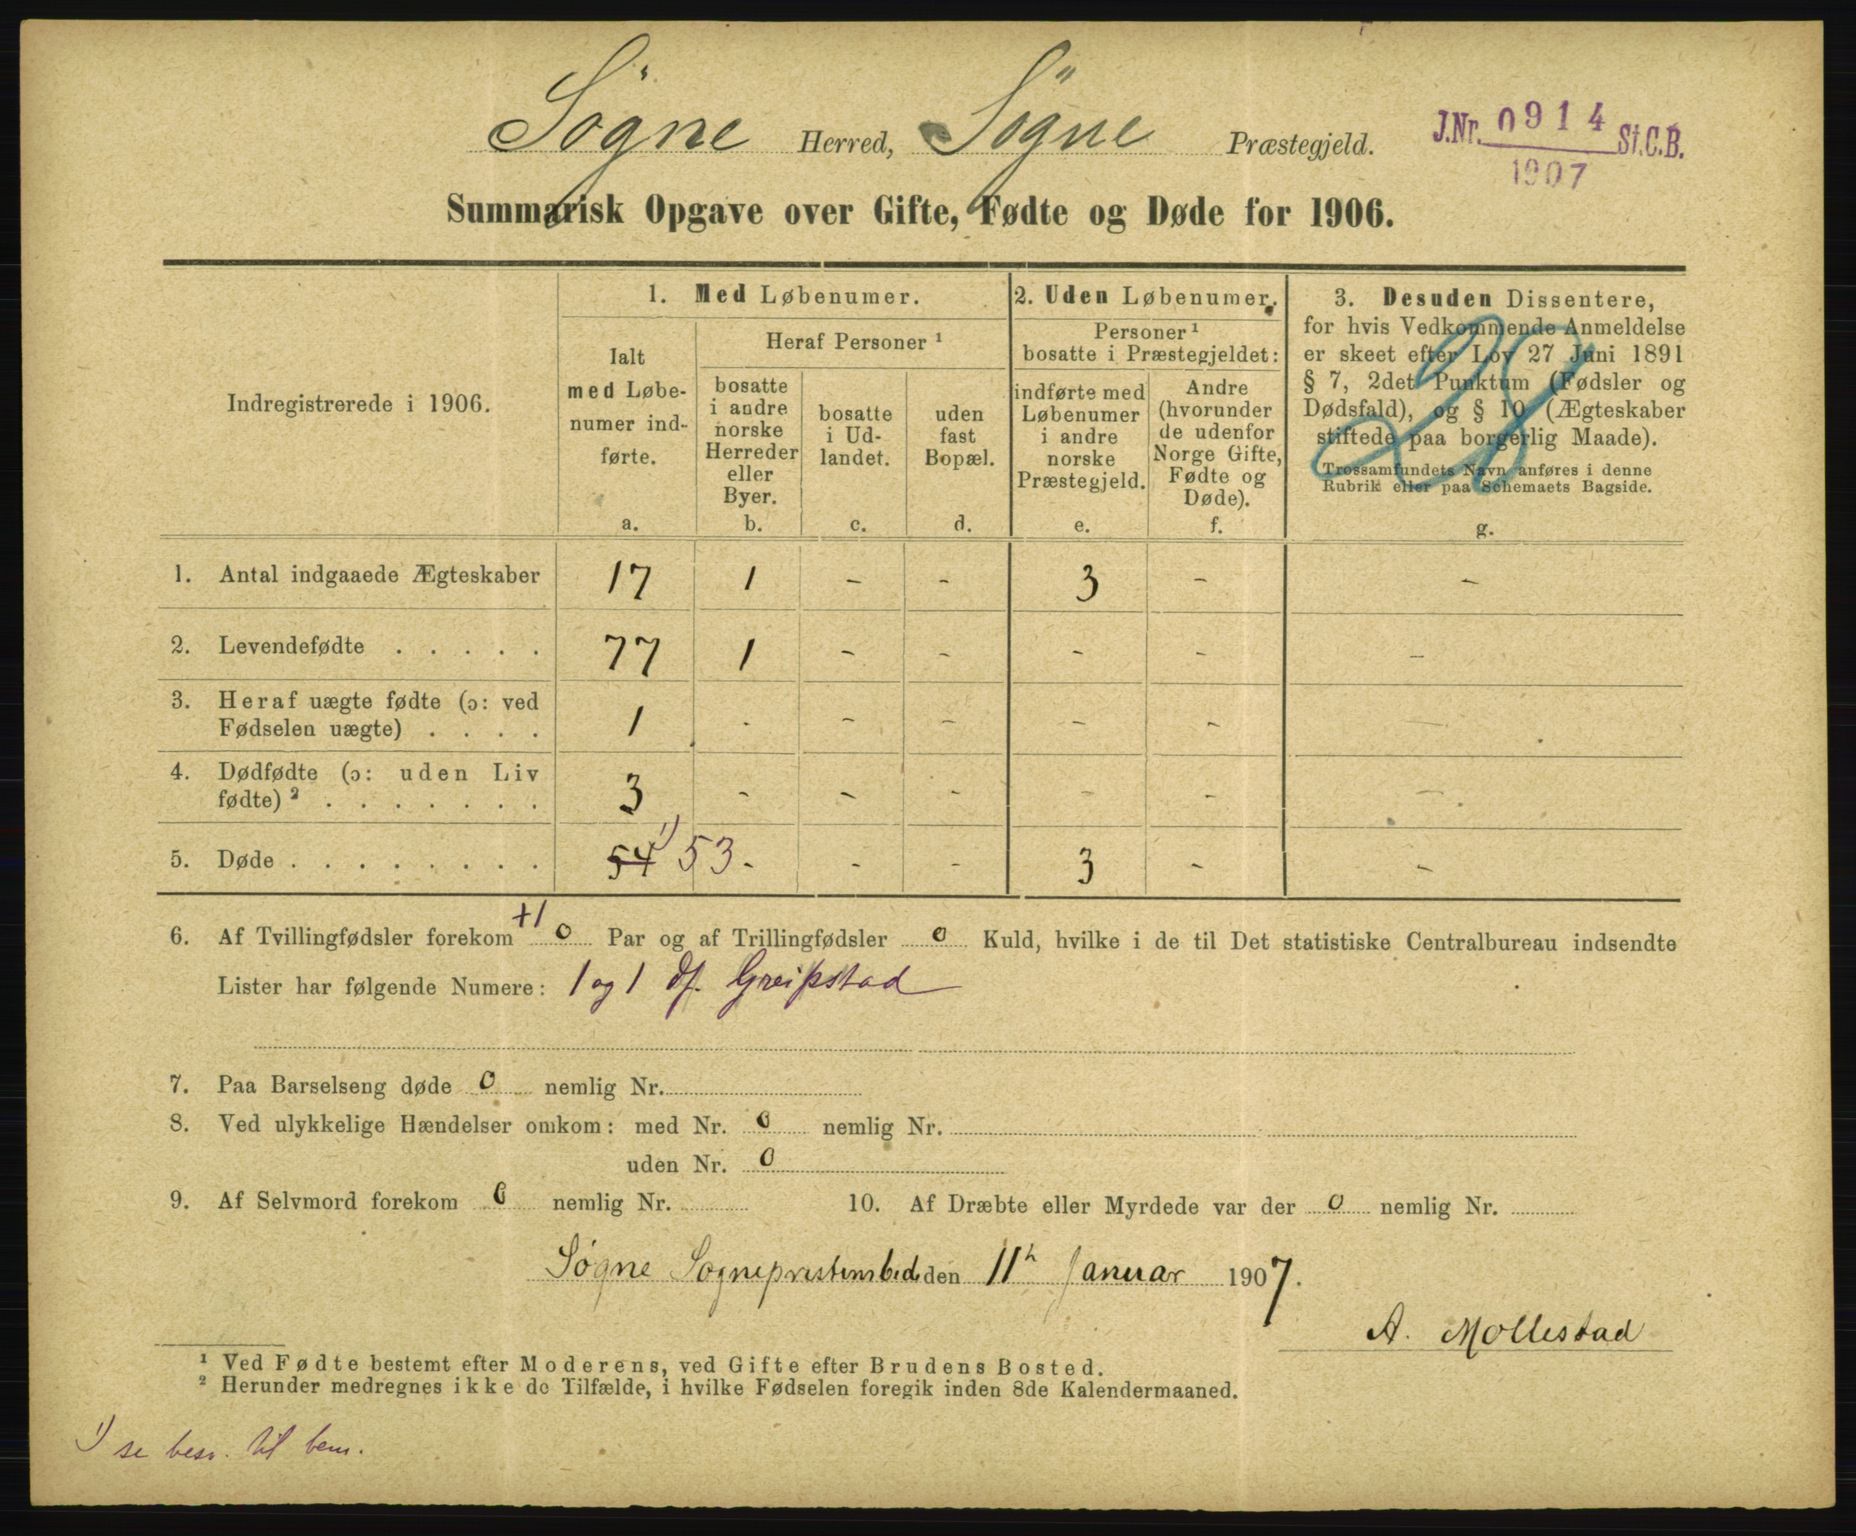 Søgne Herred, Søgne Præstegjeld.
J.Nr. 0914 St.C.B.
1907
Summarisk Opgave over Gifte, Fødte og Døde for 1906.
Indregistrerede i 1906.
1. Med Løbenumer.
Ialt
med Løbe-
numer ind-
førte.
a.
Heraf Personer ¹
bosatte
i andre
norske
Herreder
eller
Byer.
b.
bosatte
i Ud-
landet.
c.
uden
fast
Bopæl.
d.
2. Uden Løbenumer.
Personer ¹
bosatte i Præstegjeldet:
indførte med
Løbenumer
i andre
norske
Præstegjeld.
e.
Andre
(hvorunder
de udenfor
Norge Gifte,
Fødte og
Døde).
f.
3. Desuden Dissentere,
for hvis Vedkommende Anmeldelse
er skeet efter Lov 27 Juni 1891
§ 7, 2det Punktum (Fødsler og
Dødsfald), og § 10 (Ægteskaber
stiftede paa borgerlig Maade).
Trossamfundets Navn anføres i denne
Rubrik eller paa Schemaets Bagside.
g.
1. Antal indgaaede Ægteskaber 17 1 - - 3 - -
2. Levendefødte . . . . . 77 1 - - - - -
3. Heraf uægte fødte (ɔ: ved
Fødselen uægte) . . . . 1 - - - - - -
4. Dødfødte (ɔ: uden Liv
fødte) ² . . . . . . . 3 - - - - - -
5. Døde . . . . . . . . 54 ¹) 53 - - - 3 - -
6. Af Tvillingfødsler forekom +1 0 Par og af Trillingfødsler 0 Kuld, hvilke i de til Det statistiske Centralbureau indsendte
Lister har følgende Numere: 1 og 1 df. Greipstad
7. Paa Barselseng døde 0 nemlig Nr.
8. Ved ulykkelige Hændelser omkom: med Nr. 0 nemlig Nr.
uden Nr. 0
9. Af Selvmord forekom 0 nemlig Nr. 10. Af Dræbte eller Myrdede var der 0 nemlig Nr.
Søgne Sognepræstembede den 11h Januar 1907.
A. Mollestad
¹ Ved Fødte bestemt efter Moderens, ved Gifte efter Brudens Bosted.
² Herunder medregnes ikke de Tilfælde, i hvilke Fødselen foregik inden 8de Kalendermaaned.
1) se besv. til bem.